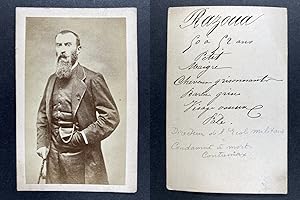 Razoua
50 à 52 ans
Petit
Maigre
Cheveux grisonnants
Barbe grise
Visage osseux
Pâle.
Directeur de l'École militaire
Condamné à mort
Contumax